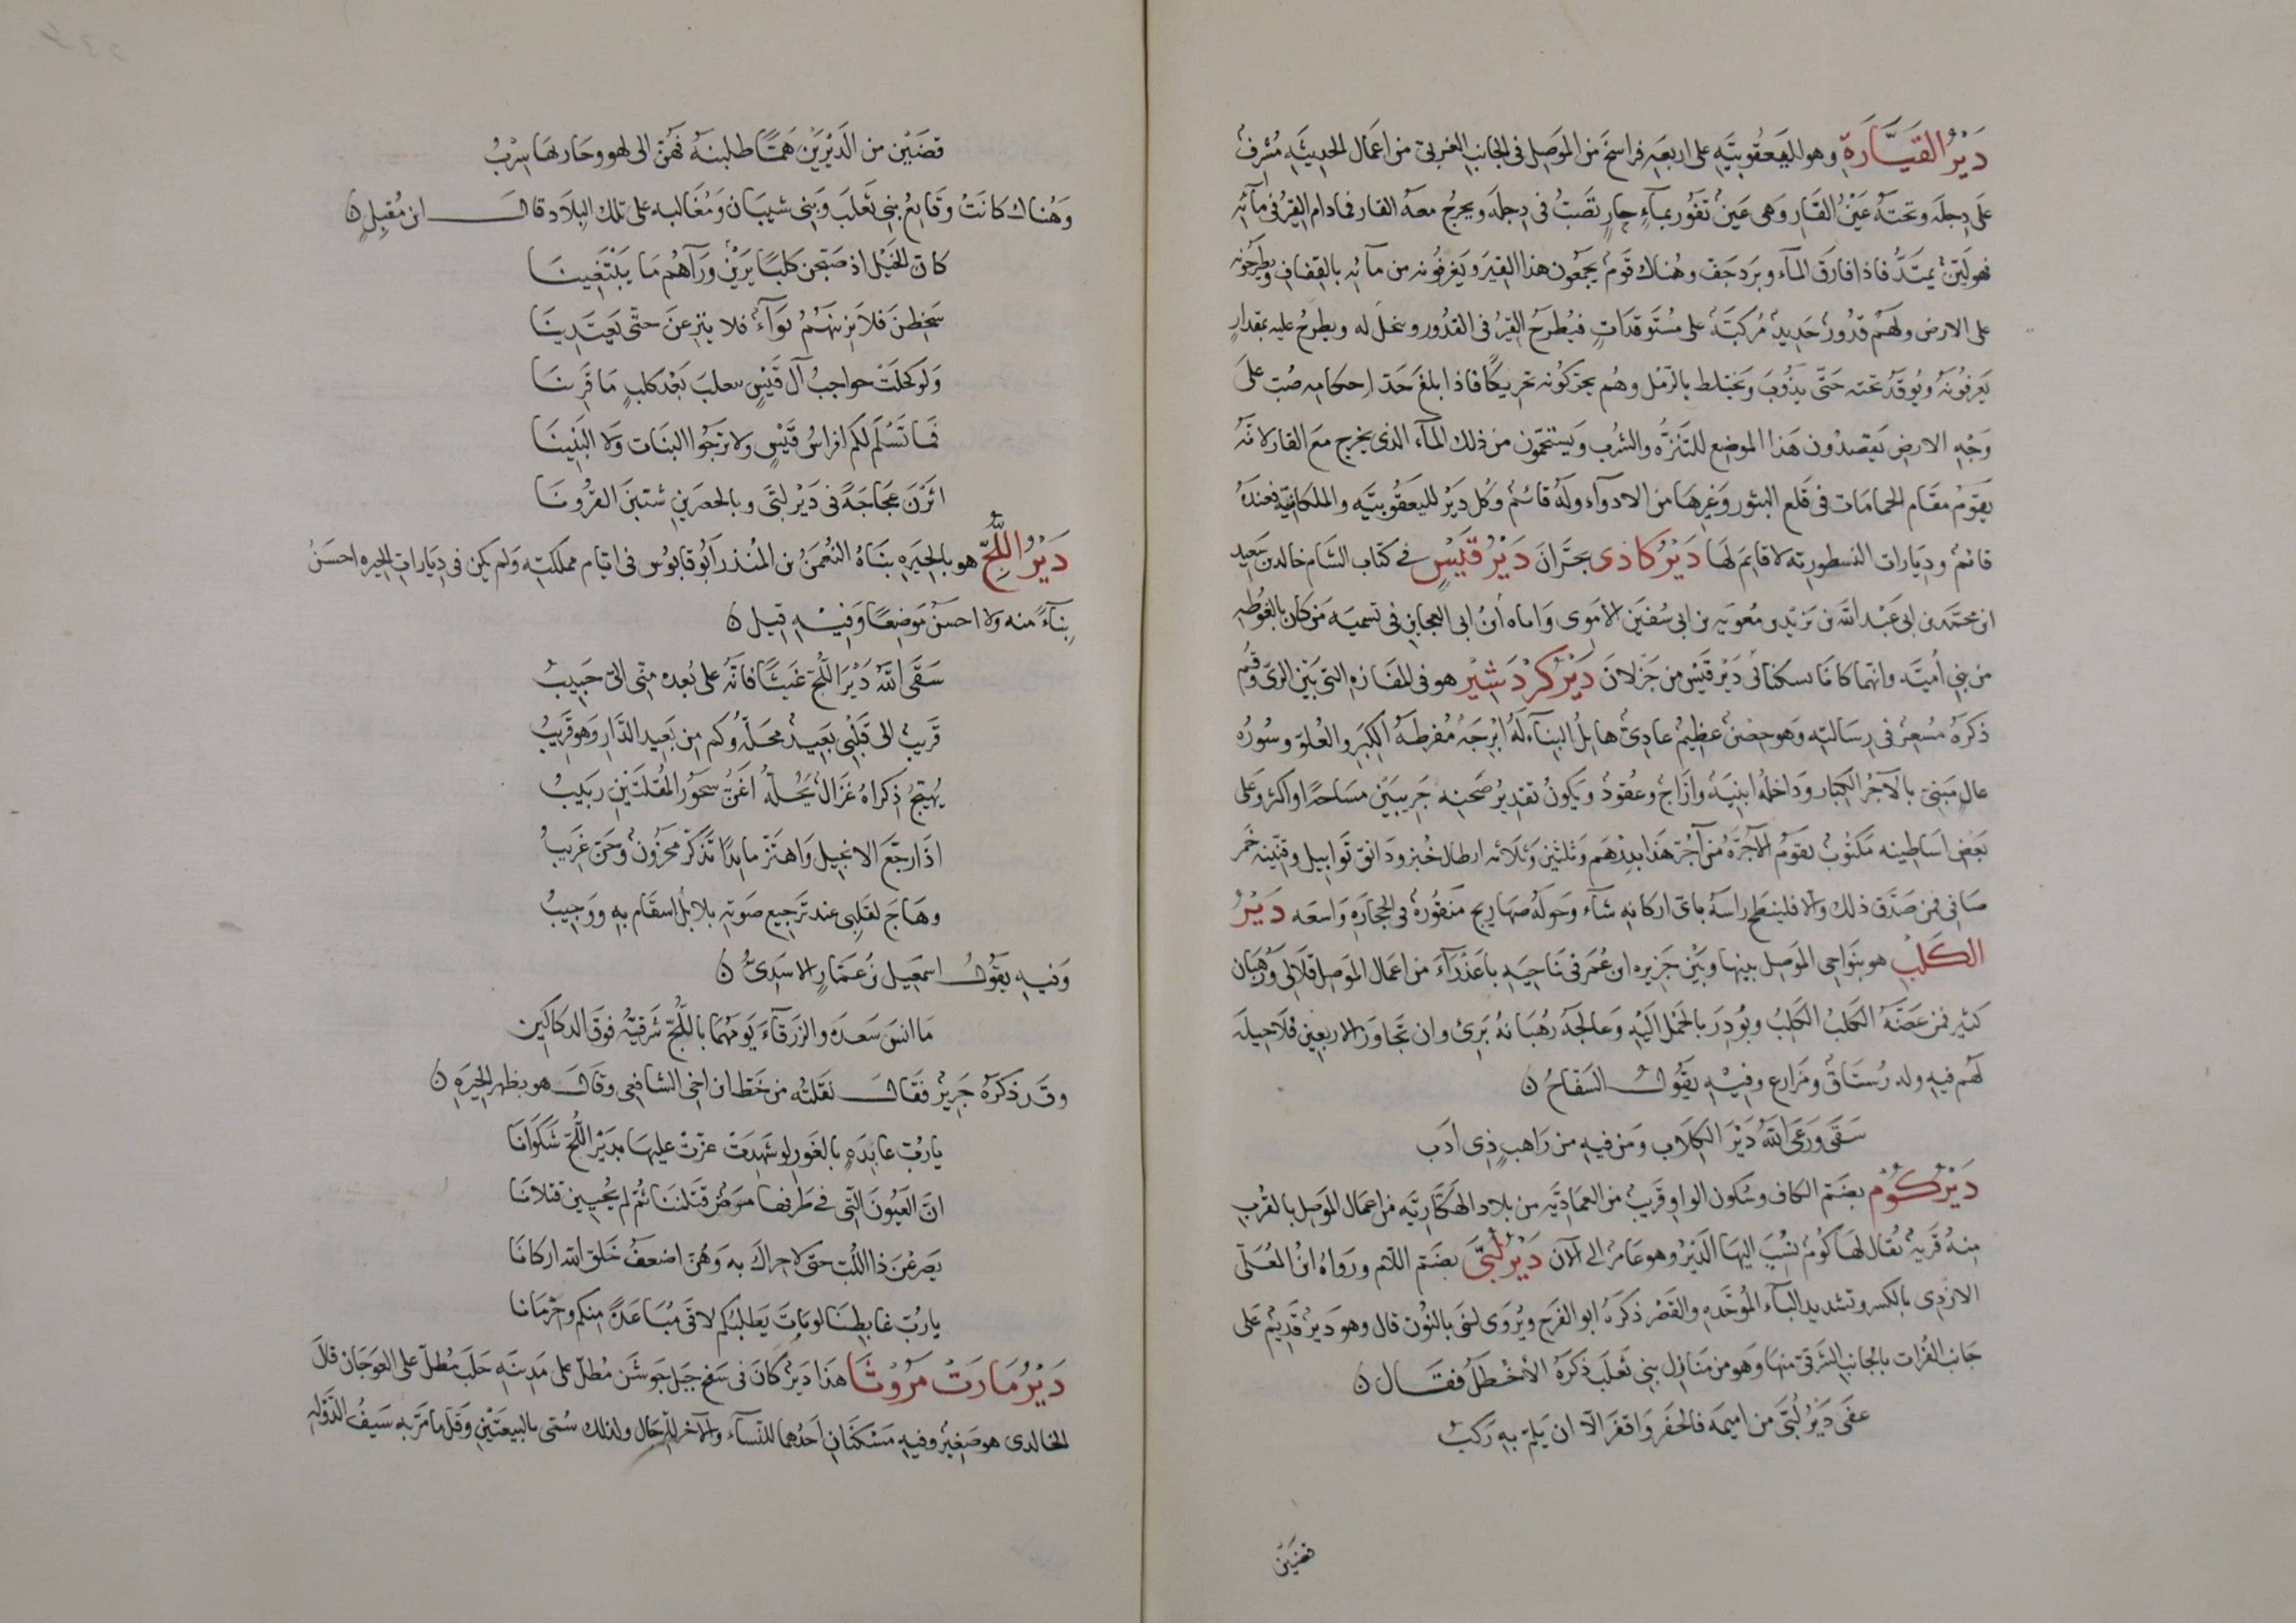 دَيْرُ القَيَّارَةِ وهو لليعقُوبيّه على اربعه فراسخ من الموصِل فى الجانب الغربىّ من اعمال الحديثه مُشرِفٌ
على دِجلَه وتحته عَيْنُ القَار وَهى عَينٌ تفُور بمآءٍ حارٍ تَصَبّ فى دِجله ويخرجُ معه القار فمادام القِيرُ فى مآئه
فهو ليّنٌ يمتَدُّ فاذا فارَق المآء وبَرد جَفّ وهُناك قَومٌ يجمعُون هذا القِيرَ ويَغرفُونه من مآئه بالقِفاف ويطرحُونه
على الارض ولهُم قدُورُ حَديدٍ مُركبَة على مُستَوقدَاتٍ فيُطرَحُ القِيرُ فى القدُور وينحَل له ويطرحُ عليه بمقدارٍ
يَعرفُونَهُ ويُوقَدُ تحته حَتّى يذُوبَ ويَختلط بالرّمل وهُم يحرّكُونه تحريكًا فاذا بلغَ حَدّ احكامِه صُبّ على
وَجْهِ الارض يَقصدُون هَذا الموضع للتَنزُّه والشُرب وَيستحمّون من ذلك المآء الذى يخرج مَعَ القار لانّهُ
يقوُمُ مقَام الحمامَات فى قلع البثور وَغيرهَا من الادوآء ولَهُ قائمٌ وَكُل دَيرٍ لليعَقُوبيَّه والملكانيّه فعندَهُ
قائمٌ ودِيَارات النسطوريّه لا قايم لهَا دَيرُ كاذى بحَرّانَ دَيْرُ قَيْسٍ فى كتاب الشام خالد بن سَعِيد
ابن محمّد بن ابى عَبْد الله بن يَزيد بن مُعويه بن ابى سُفيَن الأموى وَاماه ابنُ ابى العجاين فى تسميَه مَن كان بالغُوطه
من بنى أميَّه وانّهما كانَا يسكنَانى دَيْر قَيْس من جَزلان دَيْرُ كُرْدَشِير هو فى المفَازه التى بَيْن الرّى وقُم
ذكرَهُ مُسعِرُ فى رِسَالته وَهو حِصْنٌ عظِيمٌ عادِىّ هايلُ البنآء لَهُ ابْرِجَة مُفرطةُ الكِبَر والعُلوّ وسُورُه
عالٍ مَبنِىّ بالآجُرّ الكِبَار وَدَاخلُه ابنِيَة وآزَاجٌ وعُقودٌ وَيكونُ تقديرُ صَحنه جَرِيبَين مسَاحَةً او اكثر وَعَلى
بَعْض اسَاطِينه مَكتوُبٌ يقوَم الآجُرّهُ من آجُرّ هَذا بدِرْهَم وَثلثَين وَثلاثه ارطال خُبز ودَانق تَوابيل وقنّينه خمر
صَافى فمن صَدّق ذلك وَالا فلينطَح رَاسَهُ باىّ اركانه شآء وَحولَهُ صهَاريج مَنقُورُه فى الحجارَه وَاسعَه دَيْرُ
الكَلْبِ هو بنَوَاحى الموصِل بينها وبَيْن جَزيره ابن عُمَر فى نَاحيَهِ باعَذْرَآءَ من اعمال الموصِل قلالى وَرُهبَان
كثير فمن عَضَّهُ الكَلبُ الكَلِبُ وبُودِرَ بالحَمْل الَيْهِ وَعالجَه رُهبَانهُ بَرِئَ وان تجَاوَزَ الاربعين فَلا حِيلَة
لهُم فيهِ وله رُستَاقٌ ومَزارِع وفيْهِ يقُولُ السَفَّاحُ ن
سَقَى وَرَعَى اللهُ دَيْرَ الكِلَاب وَمَن فيهِ من رَاهبٍ ذِى أدَب
دَيْرُ كُوُمْ بضَمّ الكاف وسُكون الواو قَريبٌ من العمَادِيَّه من بلاد الهَكّارِيَّه من اعمال الموصِل بالقُرب
مِنهُ قَريَهٌ يُقال لهَا كُوُم نسُبَ اليهَا الدّيْرُ وهو عَامرٌ الى الآن دَيْرُ لُبَّى بضَمّ اللّام ورَوَاهُ ابنُ المُعَلّى
الازدى بالكسر وتشديد البآء المُوَحَّده والقَصْر ذكرَهُ ابو الفَرَج ويُروَى لبنَى بالنُوُن قال وهو دَيرٌ قَدِيمٌ عَلى
جَانب الفُرات بالجَانب الشَرقىّ منهَا وَهو من مَنَازل بنى تَغلَب ذكرَهُ الأخْطَلُ فقَال ن
عفَى دَيْرُ لُبَّى من اميمَه فالحَضْر وَاقفَرَ الّا ان يُلِمّ بِهِ رَكبُ
قضَيْن
قضَيْن من الدَيْرَيْن هَمًّا طلبنَهُ فَهُنّ الى لَهوٍ وحَار لهَا سِرْبُ
وَهُناك كانَتْ وَقَايعُ بَنى تَغلَب وَبَنى شيبَان وَمُغَالبه على تلك البِلَاد قال ابن مُقبِلٍ ن
كان الخَيْل اذ صَبّحن كلبًا يَرَيْنَ وَرَآءهُم مَا يَبْتَغِينَا
سَخِطنَ فلا يَرَينهُمُ بَوآءً فلا ينزِعنَ حتّى يَعتَدِينَا
وَلَو كحَلَتْ حواجبُ آل قَيْسٍ بتغلبَ بَعْد كلبٍ مَا قَرِينَا
فَما تَسْلَم لكم افراسُ قَيْسٍ ولا ترجُوا البنَات وَلا البَنينَا
اثَرْنَ عَجَاجَةً فى دَيْر لبَّى وبالحضرَين شيّبنَ القرُونَا
دَيْرُ اللُّجّ هو بالحِيَره بنَاهُ النعُمَنُ بن المُنذر ابُو قابُوس فى ايّام مملكته وَلم يكن فى دِيَاراتِ الحيره احسَنُ
بِنآءً منه ولا احسَنُ مَوضعًا وَفيْهِ قيل ن
سَقَى اللهُ دَيْرَ اللُجّ غَيثًا فانّهُ على بُعده منّى الىّ حَبِيبُ
قَريبٌ الى قَلْبى بَعِيدٌ محَلّهُ وَكم من بَعِيد الدَّارِ وَهو قَرِيبُ
يُهيّجُ ذِكرَاهُ غزَالٌ يَحُلّهُ اغَنُّ سَحُوَرُ المُقلَتَيْنِ رَبيبُ
اذَا رجّعَ الانجيلَ وَاهتَزّ مايدًا تذَكّرَ محزُونٌ وَحَنّ غَرِيبُ
وهَاجَ لقلبى عند تَرجيع صَوته بلابلُ اسقَام بهِ وَوَجيبُ
وَفيهِ يقُولُ اسمعيل بن عَمّارٍ الاسَدىُّ ن
مَا انسَ سَعدَة والزرقآءَ يَومهُمَا باللُجّ شَرقيَّهُ فوقَ الدكاكين
وقَد ذكرَهُ جَرِيرٌ فقَالَ نقَلتُه من خَطّ ابن اخى الشافعى وقَال هو بظهر الحِيَره ن
يارُبّ عايِذَهٍ بالغَور لو شهِدَتْ عزّتْ عليهَا بدَيْر اللُجّ شَكوَانَا
انّ العُيُونَ التّى فى طرفها مَرَضٌ قتَلنَنا ثُمّ لم يُحيين قتلانَا
يَصرَعْنَ ذا اللُبّ حتّى لا حِراكَ به وَهُنّ اضعفُ خَلق الله اركانَا
يارُبّ غابطنَا لوبَاتَ يَطلبُكم لاقَى مُبَاعَدةً منكم وحْرمَانا
دَيْرُ مَارَتْ مَرُوْثَا هَذا دَيْرٌ كانَ فى سَفح جَبَل جَوشَن مُطلّ على مَدِينَهِ حَلَبَ مُطلّ على العَوجَان قالَ
الخالدى هو صَغِيرٌ وفيهِ مَسْكنَانِ احَدُهما للنّسآء والآخر للرّجَال ولذلك سُمّى بالبيعَتَيْن وَقلّما مَرّ بهِ سَيفُ الدَوْلهِ